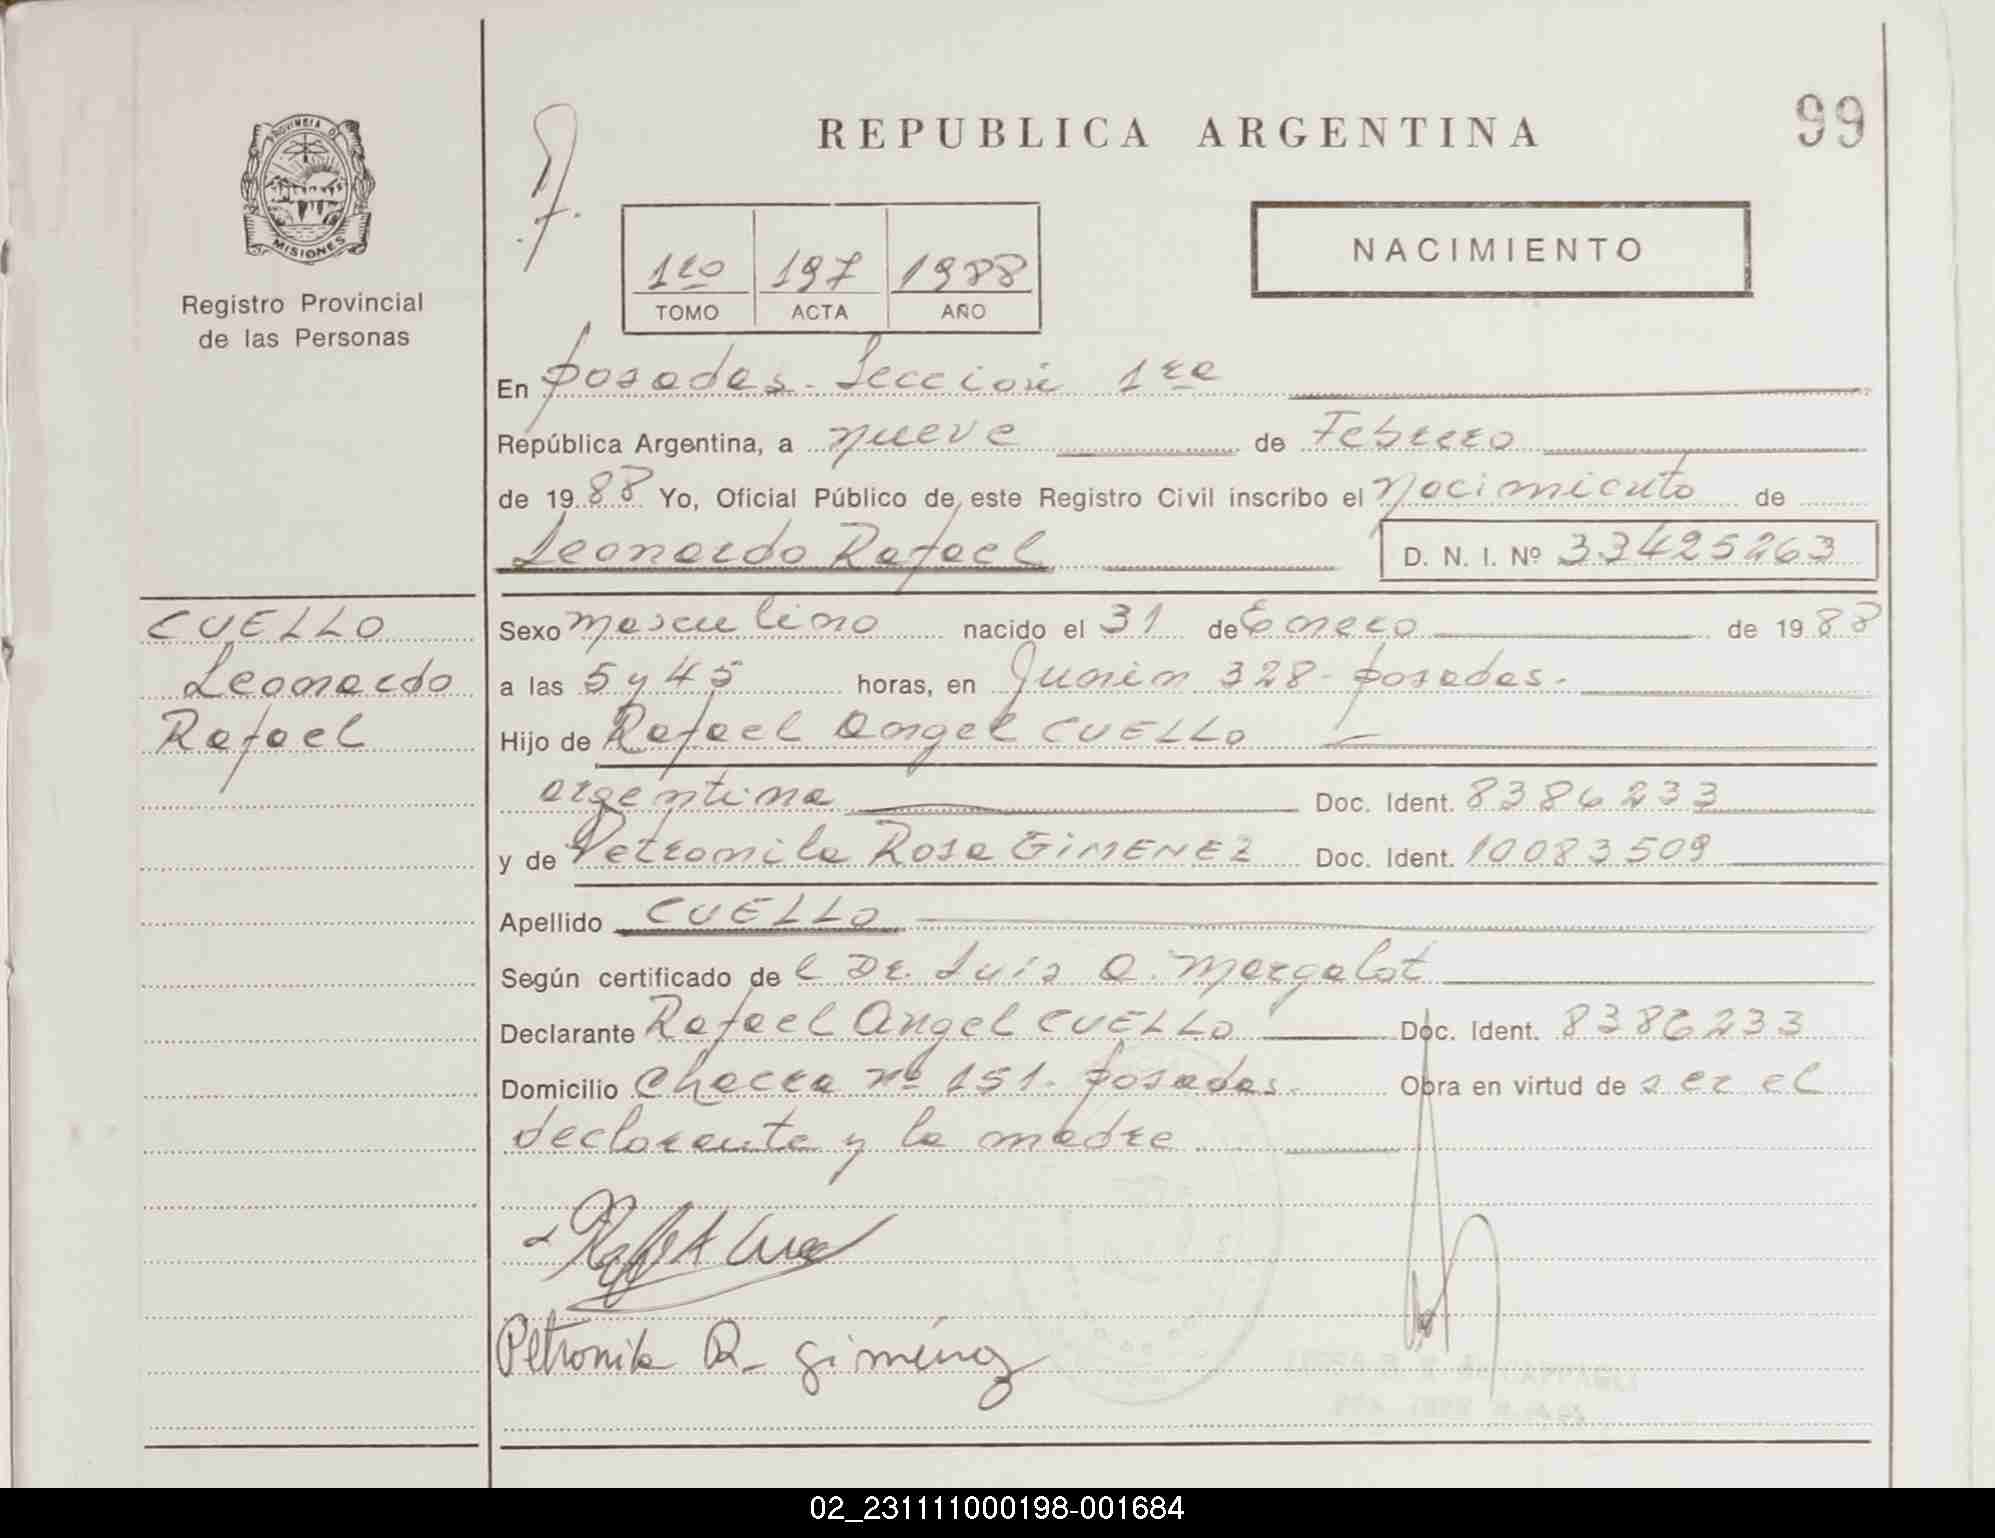 REPUBLICA ARGENTINA
99
PROVINCIA D
MISIONES
Registro Provincial
de las Personas
1ro 197 1988
TOMO ACTA AÑO
NACIMIENTO
En Posadas. Sección 1ra
República Argentina, a nueve de Febrero
de 19 88 Yo, Oficial Público de este Registro Civil inscribo el Nacimiento de
Leonardo Rafael D. N. I. Nº 33425263
CUELLO
Leonardo
Rafael
Sexo Masculino nacido el 31 de Enero de 19 88
a las 5 y 45 horas, en Junin 328 - Posadas.
Hijo de Rafael Angel CUELLO
argentina Doc. Ident. 8386233
y de Petromila Rosa GIMENEZ Doc. Ident. 10083509
Apellido CUELLO
Según certificado de l Dr. Luis A. Margalot
Declarante Rafael Angel CUELLO Doc. Ident. 8386233
Domicilio Chacra Nº 151. Posadas. Obra en virtud de ser el
declarante y la madre
Petronila R. Giménez